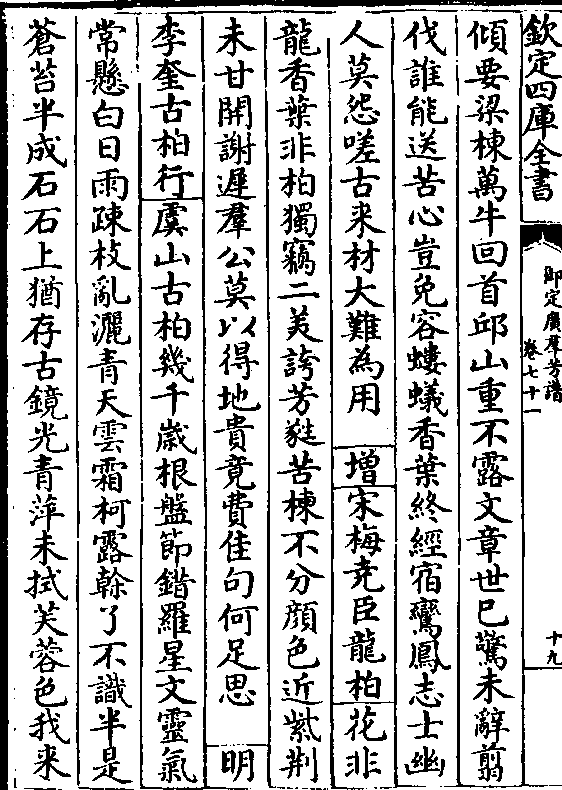 欽定四庫全書
御定廣羣芳譜
卷七十一
十九
傾要梁棟萬牛回首邱山重不露文章世已驚未辭翦
伐誰能送苦心豈免容螻蟻香葉終經宿鸞鳳志士幽
人莫怨嗟古来材大難為用 增宋梅尭臣龍柏花非
龍香葉非柏獨竊二美誇芳蕤苦楝不分顔色近紫荆
未甘開謝遲羣公莫以得地貴竟費佳句何足思 明
李奎古柏行虞山古柏幾千歳根盤節錯羅星文靈氣
常懸白日雨疎枝亂灑青天雲霜柯露榦了不識半是
蒼苔半成石石上猶存古鏡光青萍未拭芙蓉色我来